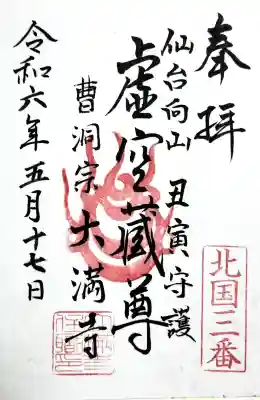 奉拝
北国三番
仙台向山 丑寅守護
虚空蔵尊
曹洞宗 大満寺
令和六年五月十七日